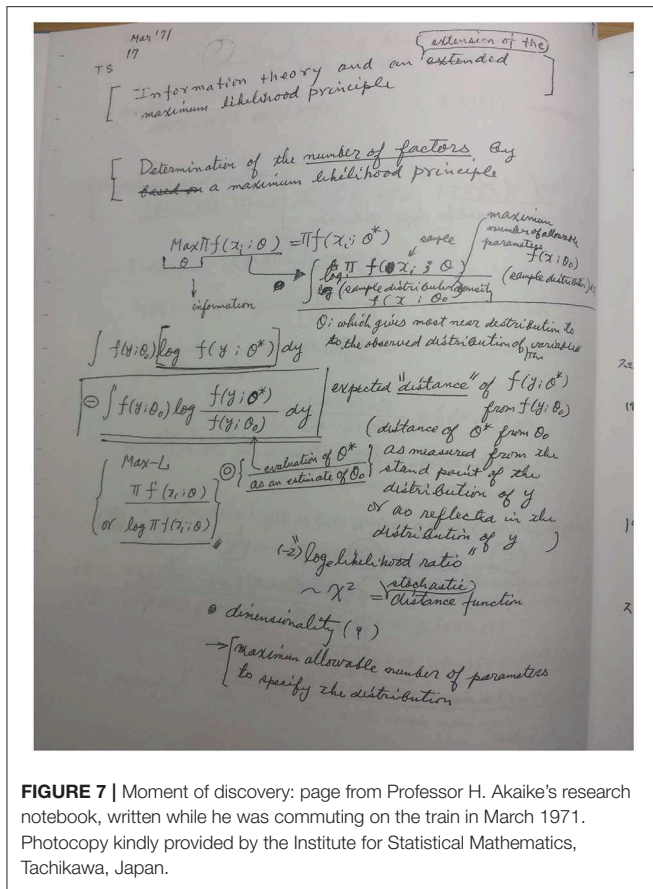 Mar '71
17
TS
extension of the
[ Information theory and an extended
maximum likelihood principle ]
[ Determination of the number of factors by
based on a maximum likelihood principle
Max π f(x_i ; θ) = π f(x_i ; θ*)
θ
information
sample
maximum
number of allowable
parameters
f(x ; θ₀)
log π f(x_i ; θ)
(sample distribution)
f(x ; θ₀
θ ; which gives most near distribution to
to the observed distribution of variables
the
∫ f(y;θ₀) [log f(y ; θ*)] dy
⊖ ∫ f(y;θ₀) log f(y;θ*) / f(y;θ₀) dy
expected "distance" of f(y;θ*)
from f(y;θ₀)
(distance of θ* from θ₀
as measured from the
stand point of the
distribution of y
or as reflected in the
distribution of y )
{ evaluation of θ*
as an estimate of θ₀ }
{ Max-L
π f(x_i ; θ)
or log π f(x_i ; θ) }
(-2) "log likelihood ratio"
~ χ² = stochastic
distance function
• dimensionality (?)
→ [ maximum allowable number of parameters
to specify the distribution
FIGURE 7 | Moment of discovery: page from Professor H. Akaike's research
notebook, written while he was commuting on the train in March 1971.
Photocopy kindly provided by the Institute for Statistical Mathematics,
Tachikawa, Japan.